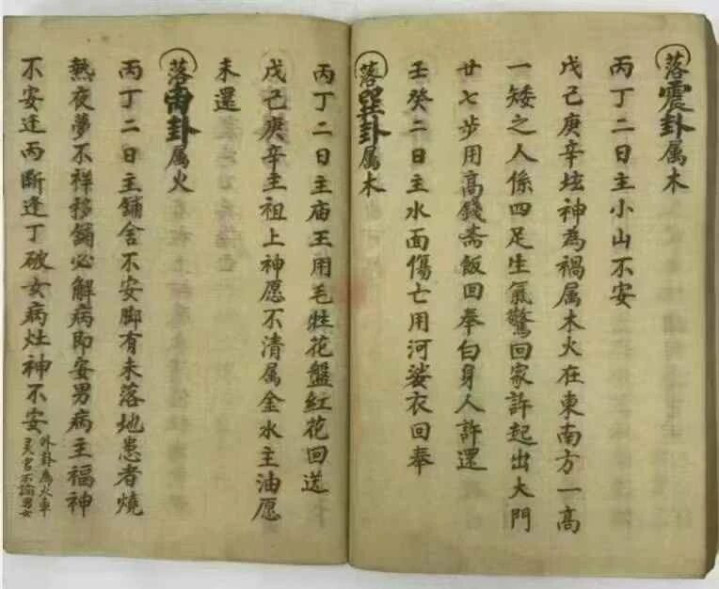 落震卦属木
丙丁二日主小山不安
戊己庚辛坛神為禍属木火在東南方一高
一矮之人係四足生氣驚回家許起出大門
廿七步用高錢斋飯回奉白身人許还
壬癸二日主水面傷亡用河娑衣回奉
落巽卦属木
丙丁二日主庙王用毛牲花盤紅花回送
戊己庚辛主祖上神愿不清属金水主油愿
未還
落离卦属火
丙丁二日主鋪舍不安脚有未落地患者燒
熱夜夢不祥移鋪必解病即安男病主福神
不安逢丙斷逢丁破女病灶神不安
外卦為火車
灵名不論男女